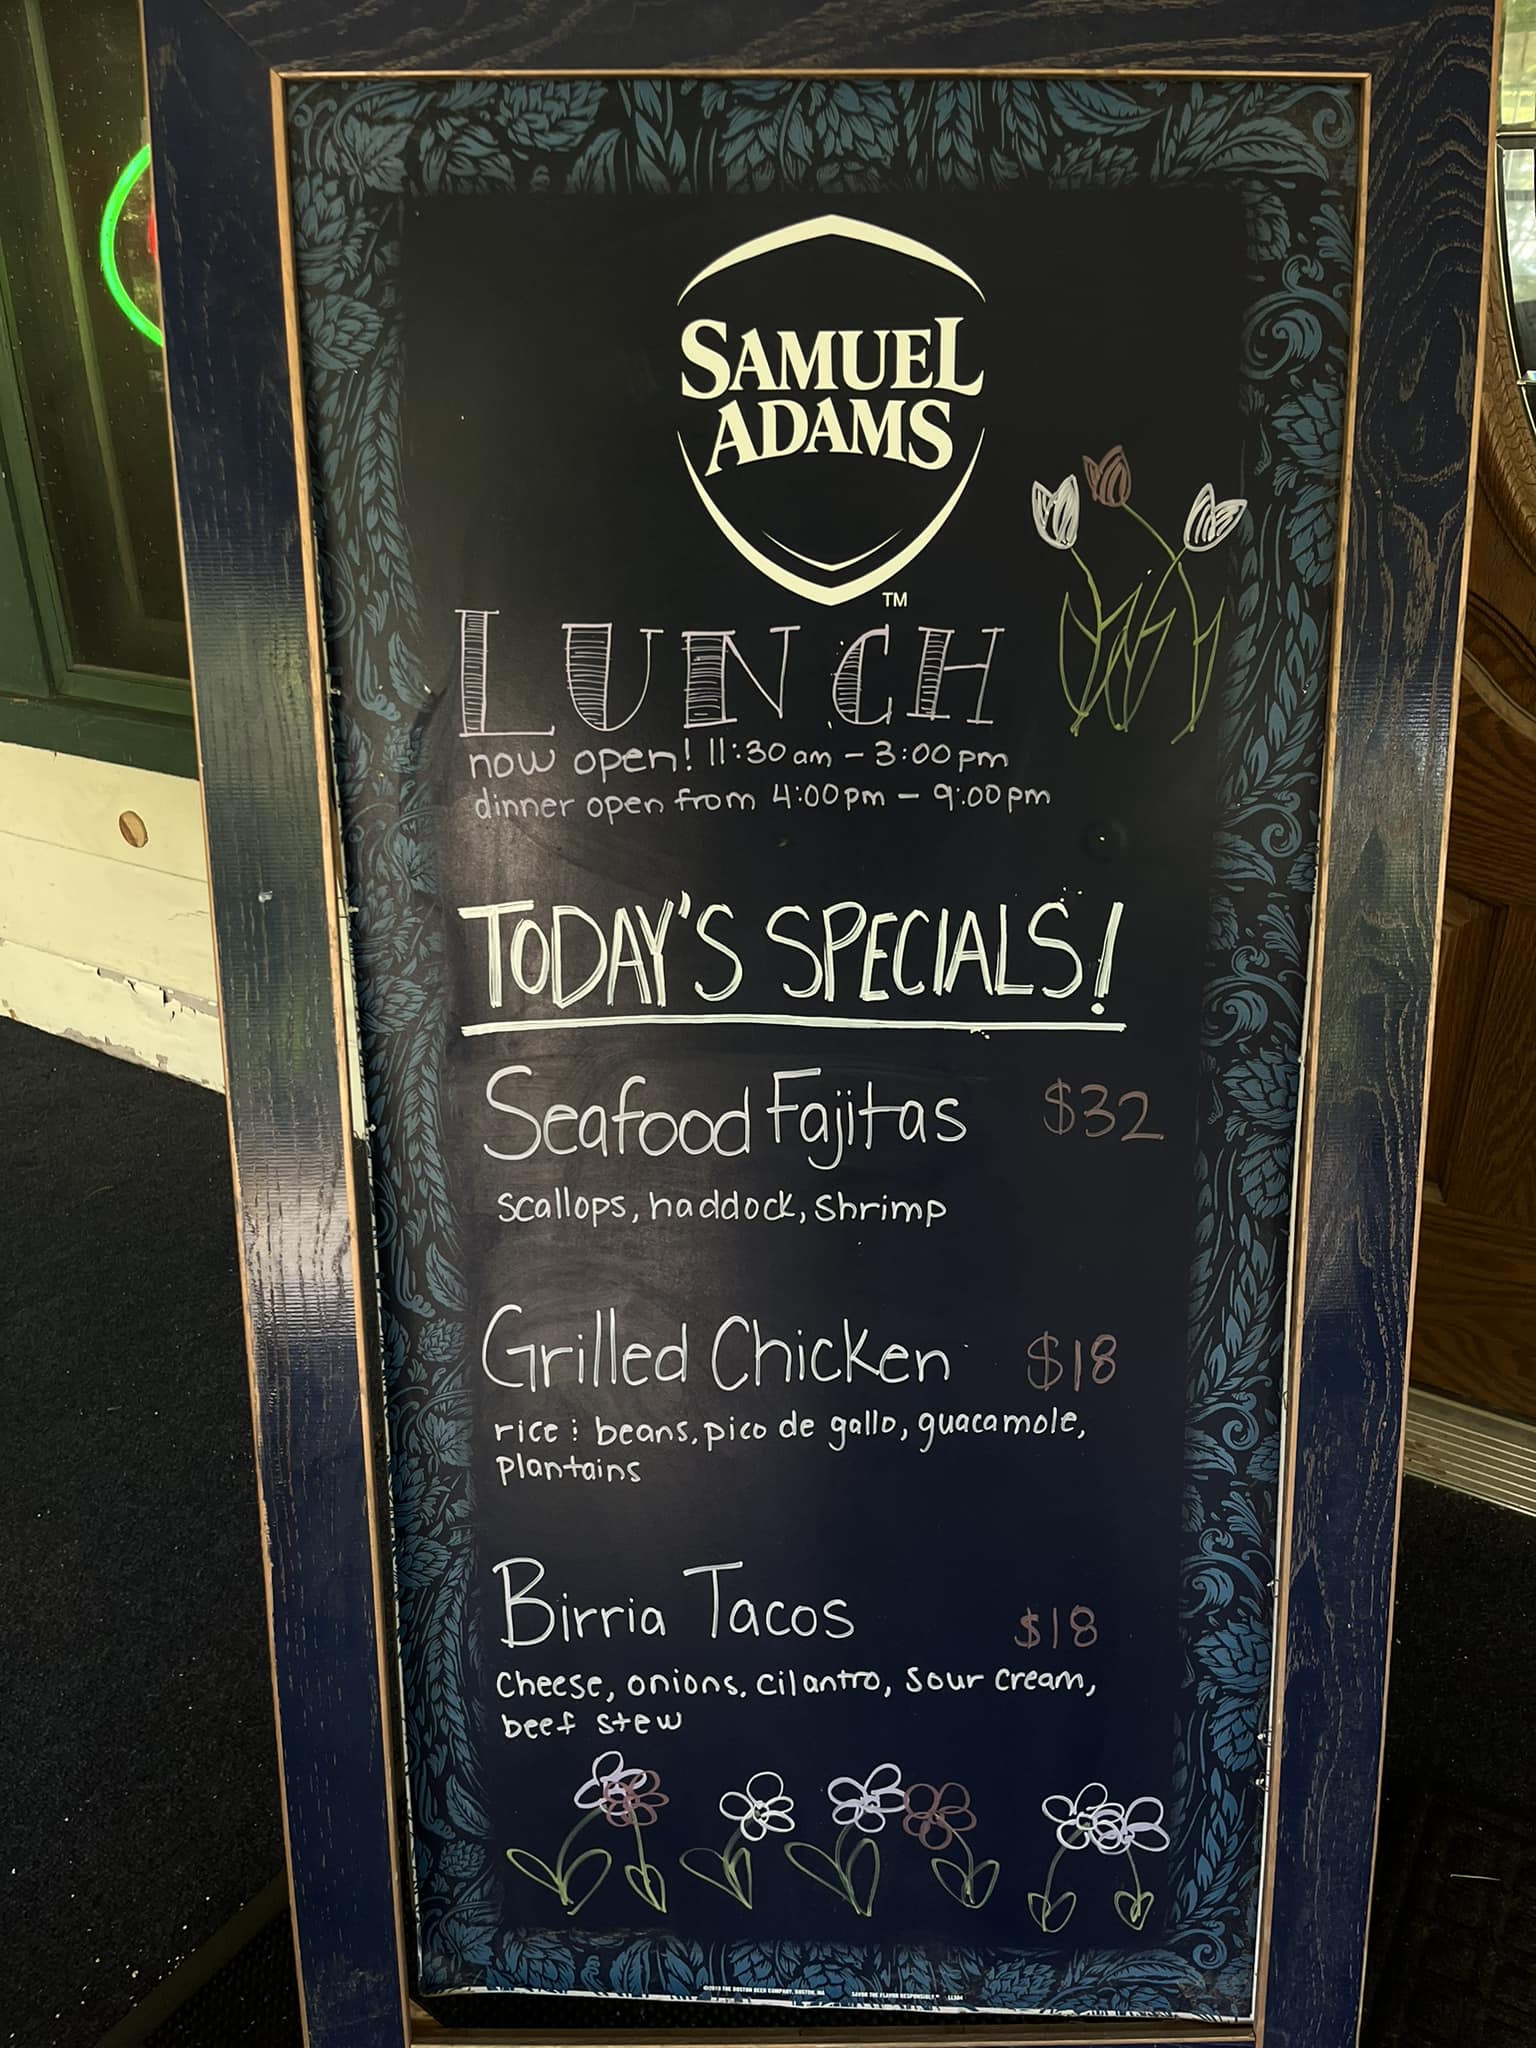 SAMUEL
ADAMS
TM
LUNCH
now open! 11:30 am - 3:00 pm
dinner open from 4:00 pm - 9:00 pm
TODAY'S SPECIALS!
Seafood Fajitas $32
scallops, haddock, shrimp
Grilled Chicken $18
rice & beans, pico de gallo, guacamole,
plantains
Birria Tacos $18
Cheese, onions, cilantro, sour cream,
beef stew
©2019 THE BOSTON BEER COMPANY, BOSTON, MA SAVOR THE FLAVOR RESPONSIBLY®